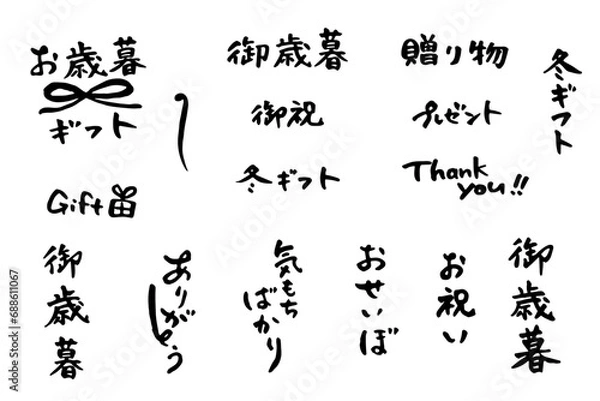 お歳暮
ギフト
御歳暮
贈り物
冬ギフト
御祝
プレゼント
冬ギフト
Thank
you!!
Gift
御歳暮
ありがとう
気もち
ばかり
おせいぼ
お祝い
御歳暮
Adobe Stock | #688611067
Adobe Stock